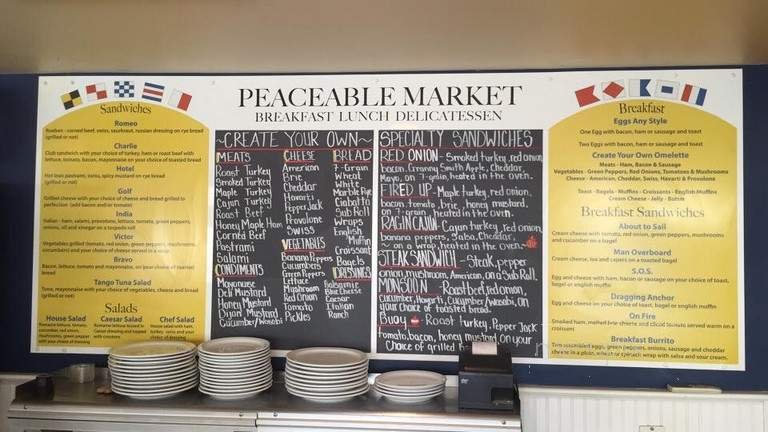 PEACEABLE MARKET
BREAKFAST LUNCH DELICATESSEN
Sandwiches
Romeo
Reuben - corned beef, swiss, sourkraut, russian dressing on rye bread
(grilled or not)
Charlie
Club sandwich with your choice of turkey, ham or roast beef with
lettuce, tomato, bacon, mayonnaise on your choice of toasted bread
Hotel
Hot lean pastrami, swiss, spicy mustard on rye bread
(grilled or not)
Golf
Grilled cheese with your choice of cheese and bread grilled to
perfection (add bacon and/or tomato)
India
Italian - ham, salami, provolone, lettuce, tomato, green peppers,
onions, oil and vinegar on a torpedo roll
Victor
Vegetables grilled (tomato, red onion, green peppers, mushrooms,
cucumbers) and your choice of cheese served in a wrap
Bravo
Bacon, lettuce, tomato and mayonnaise, on your choice of toasted
bread
Tango Tuna Salad
Tuna, mayonnaise with your choice of vegetables, cheese and bread
(grilled or not)
Salads
House Salad
Romaine lettuce, tomato,
cucumber, red onion,
mushrooms, green pepper
with your choice of dressing
Caesar Salad
Romaine lettuce tossed in
Caesar dressing and topped
with croutons
Chef Salad
House salad with ham,
turkey, swiss and your
choice of dressing
~CREATE YOUR OWN~
MEATS
Roast Turkey
Smoked Turkey
Maple Turkey
Cajun Turkey
Roast Beef
Honey Maple Ham
Corned Beef
Pastrami
Salami
CONDIMENTS
Mayonnaise
Deli Mustard
Honey Mustard
Dijon Mustard
Cucumber/Wasabi
CHEESE
American
Brie
Cheddar
Havarti
PepperJack
Provolone
Swiss
VEGETABLES
Banana Peppers
Cucumbers
Green Peppers
Lettuce
Mushroom
Red Onion
Tomato
Pickles
BREAD
7-Grain
Wheat
White
Marble Rye
Ciabatta
Sub Roll
Wraps
English
Muffin
Croissant
Bagels
DRESSINGS
Balsamic
Blue Cheese
Caesar
Italian
Ranch
SPECIALTY SANDWICHES
RED ONION - Smoked turkey, red onion,
bacon, Granny Smith Apple, Cheddar,
Mayo, on 7-grain, heated in the oven.
FIRED UP - Maple turkey, red onion,
bacon, tomato, brie, honey mustard,
on 7-grain heated in the oven.
RAGIN CAJUN - Cajun turkey, red onion,
banana peppers, Salsa, Cheddar,
on a wrap, heated in the oven.
STEAK SANDWICH - Steak, pepper
onion, mushroom, American, on a Sub Roll.
MONSOON - Roast beef, red onion,
cucumber, Havarti, Cucumber/Wasabi, on
your choice of toasted bread.
Buoy - Roast turkey, Pepper Jack
tomato, bacon, honey mustard, on your
choice of grilled
Breakfast
Eggs Any Style
One Egg with bacon, ham or sausage and toast
Two Eggs with bacon, ham or sausage and toast
Create Your Own Omelette
Meats - Ham, Bacon & Sausage
Vegetables - Green Peppers, Red Onions, Tomatoes & Mushrooms
Cheese - American, Cheddar, Swiss, Havarti & Provolone
Toast - Bagels - Muffins - Croissants - English Muffins
Cream Cheese - Jelly - Butter
Breakfast Sandwiches
About to Sail
Cream cheese with tomato, red onion, green peppers, mushrooms
and cucumber on a bagel
Man Overboard
Cream cheese, lox and capers on a toasted bagel
S.O.S.
Egg and cheese with ham, bacon or sausage on your choice of toast,
bagel or english muffin
Dragging Anchor
Egg and cheese on your choice of toast, bagel or english muffin
On Fire
Smoked ham, melted brie cheese and sliced tomato served warm on a
croissant
Breakfast Burrito
Two scrambled eggs, green peppers, onions, sausage and cheddar
cheese in a plain, wheat or spinach wrap with salsa and sour cream.